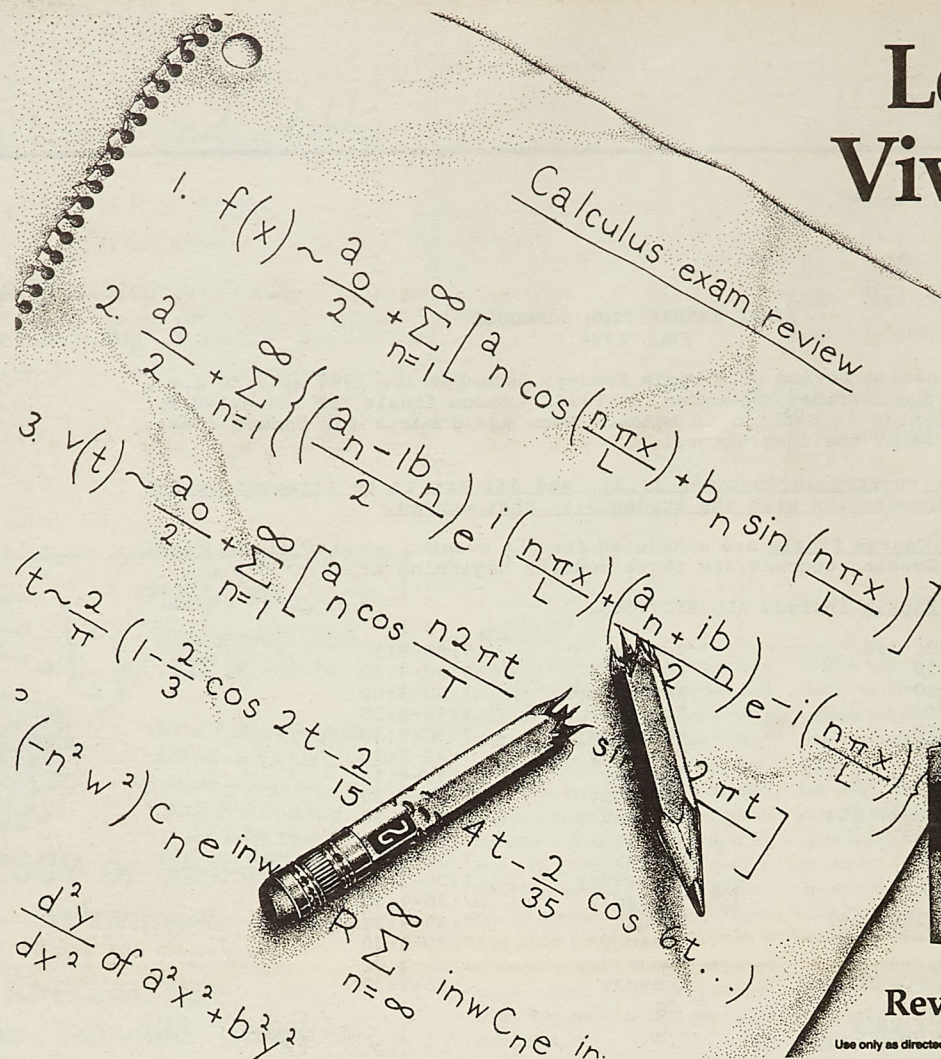 Calculus exam review
1. f(x) ~ a0/2 + ∞ Σ n=1 [a n cos (nπx/L) + b n sin (nπx/L)]
2. a0/2 + ∞ Σ n=1 {((an - Ib n)/2) e i (nπx/L) + ((a n + ib n)/2) e -i (nπx/L)}
3. v(t) ~ a0/2 + ∞ Σ n=1 [a n cos n2πt/T sin 2πt]
(t ~ 2/π (1 - 2/3 cos 2t - 2/15 4t - 2/35 cos 6t...)
(-n² w²) C n e inw R ∞ Σ n=∞ inw C n e in
d²y/dx² of a²x² + b²y²
2
Rev
Use only as directed